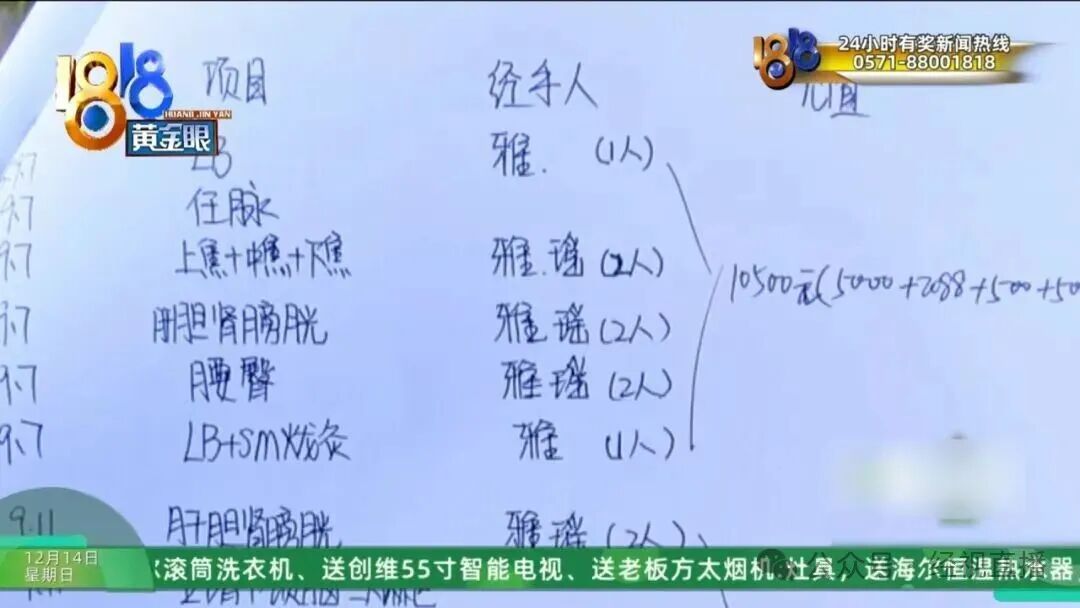 1818
HUANG JIN YAN
黄金眼
24小时有奖新闻热线
0571-88001818
项目 经手人
9.7 LB 雅. (1人)
9.7 任脉
9.7 上焦+中焦+下焦 雅.瑶 (2人)
10500元(5000+2088+500+50
9.7 肝胆肾膀胱 雅.瑶 (2人)
9.7 腰臀 雅瑶 (2人)
9.7 LB+SM拨灸 雅 (1人)
9.11 肝胆肾膀胱 雅瑶 (2人)
12月14日
星期日
滚筒洗衣机、送创维55寸智能电视、送老板方太烟机 灶具、送海尔恒温热水器
公众号 · 经视直播